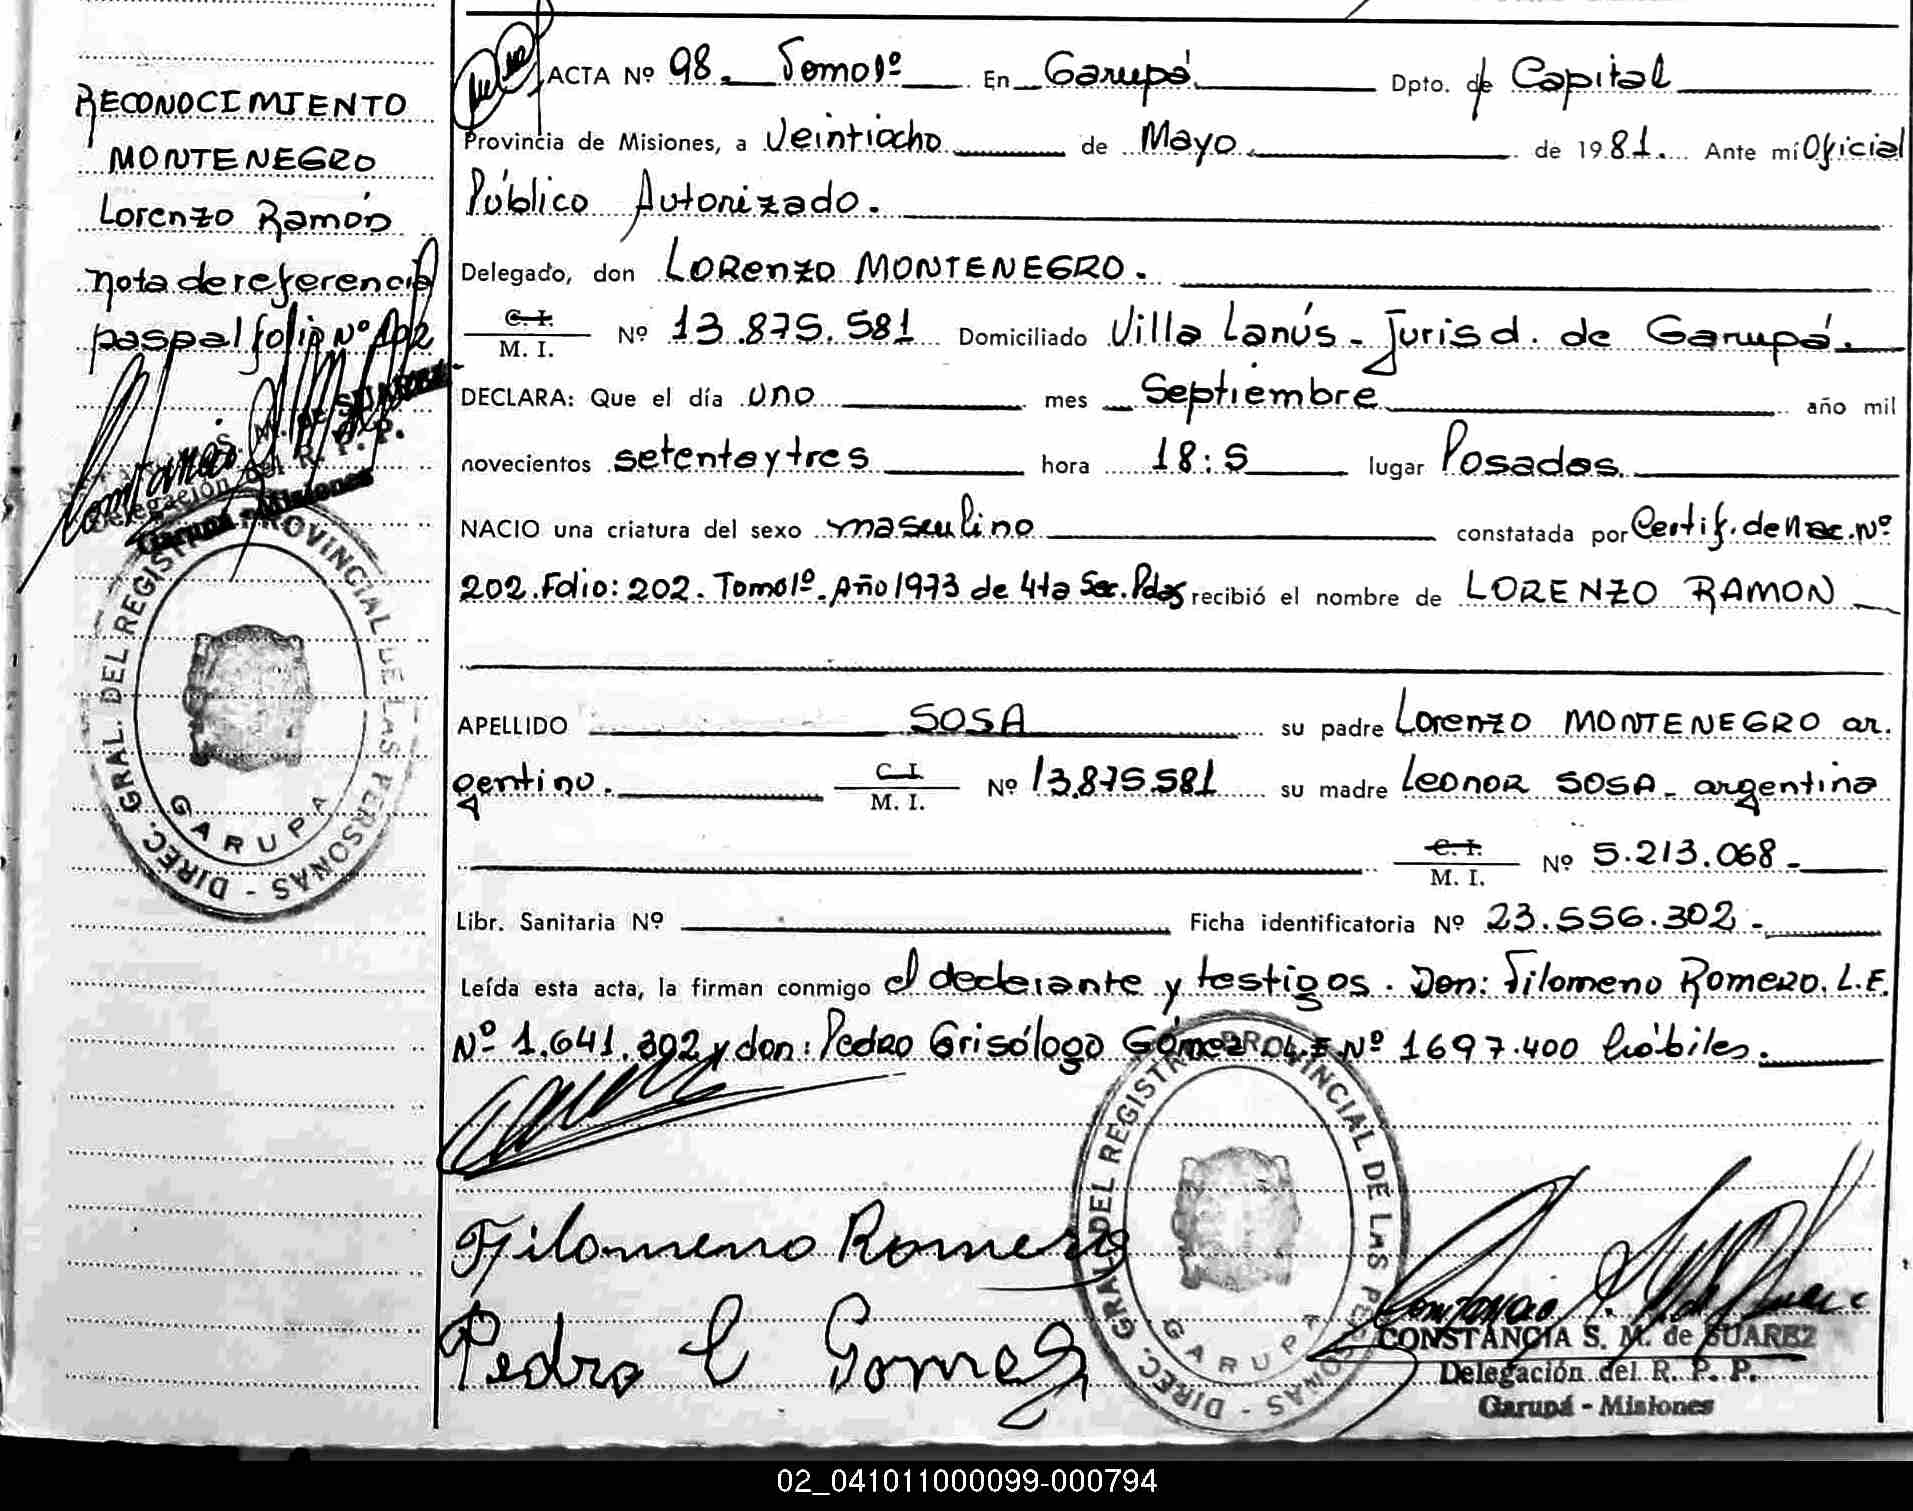 RECONOCIMIENTO
MONTENEGRO
Lorenzo Ramón
nota de referencia
pasp al folio Nº 102
DIREC. GRAL. DEL REGISTRO PROVINCIAL DE LAS PERSONAS -
GARUPA
ACTA Nº 98. Tomo 1º En Garupá Dpto. de Capital
Provincia de Misiones, a Veintiocho de Mayo de 1981. Ante mí Oficial
Público Autorizado.
Delegado, don LORENZO MONTENEGRO.
C. I.
M. I. Nº 13.875.581 Domiciliado Villa Lanús - Jurisd. de Garupá.
DECLARA: Que el día uno mes Septiembre año mil
novecientos setenta y tres hora 18:5 lugar Posadas.
NACIO una criatura del sexo masculino constatada por Certif. de Nac. Nº
202. Folio: 202. Tomo 1º. Año 1973 de 4ta Sec. Pdas recibió el nombre de LORENZO RAMON
APELLIDO SOSA su padre Lorenzo MONTENEGRO ar.
gentino. C. I.
M. I. Nº 13.875.581 su madre Leonor SOSA - argentina
C. I.
M. I. Nº 5.213.068 -
Libr. Sanitaria Nº Ficha identificatoria Nº 23.556.302 -
Leída esta acta, la firman conmigo el declarante y testigos. Don: Filomeno Romero. L.E.
Nº 1.641.302 y don: Pedro Grisólogo Gómez L.E Nº 1697.400 hábiles.
DIREC. GRAL. DEL REGISTRO PROVINCIAL DE LAS PERSONAS -
GARUPA
Filomeno Romero
Pedro G Gomez
CONSTANCIA S. M. de SUAREZ
Delegación del R. P. P.
Garupá - Misiones
02_041011000099-000794